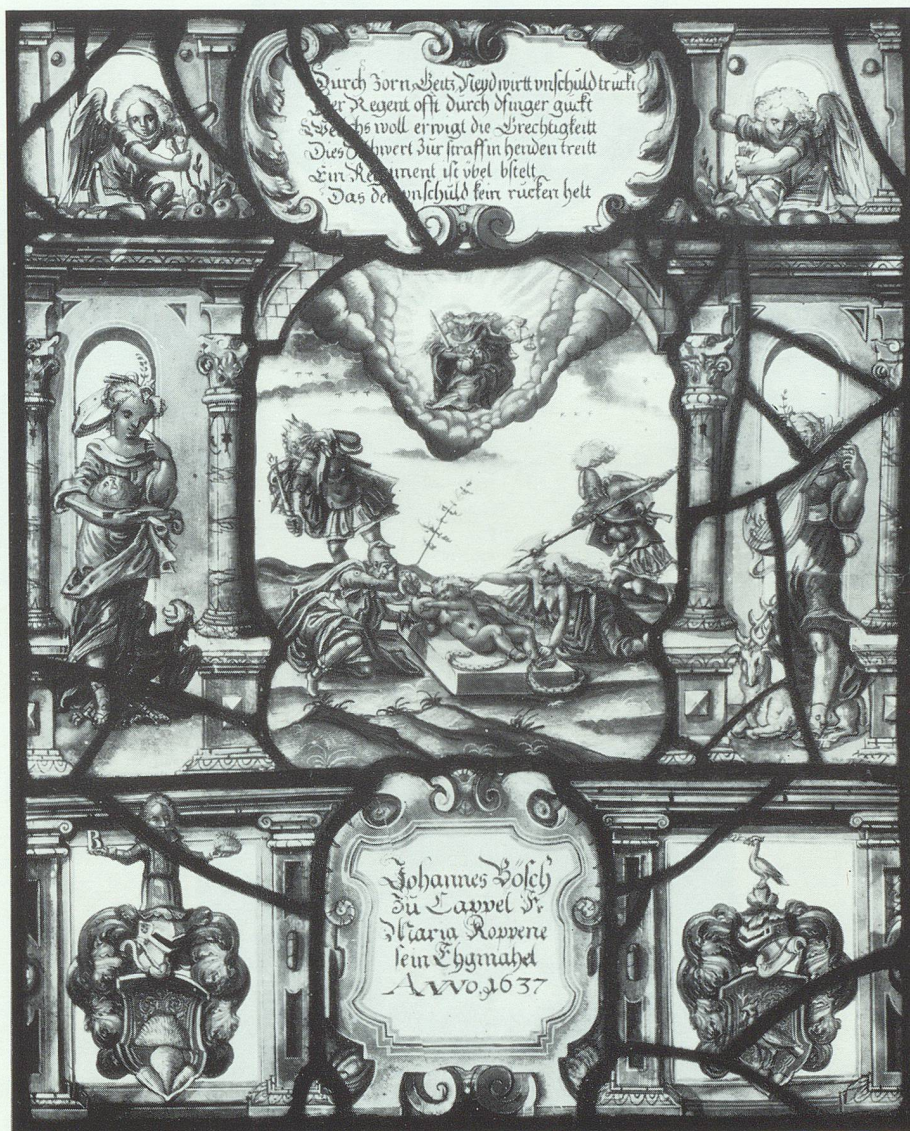 Durch Zorn Geitz Neyd wirtt vnschuld truckt
Der Regent offt durch dfinger guckt
woll erwigt die Grechtigkeitt
Dies Schwert zur straff in henden treitt
Ein Regiment ist vbel bstelt
Das der vnschuld kein rucken helt
B
Johannes Bösch
Zu Cappel Vn
Maria Koppene
sein Ehgmahel
ANNO. 1637